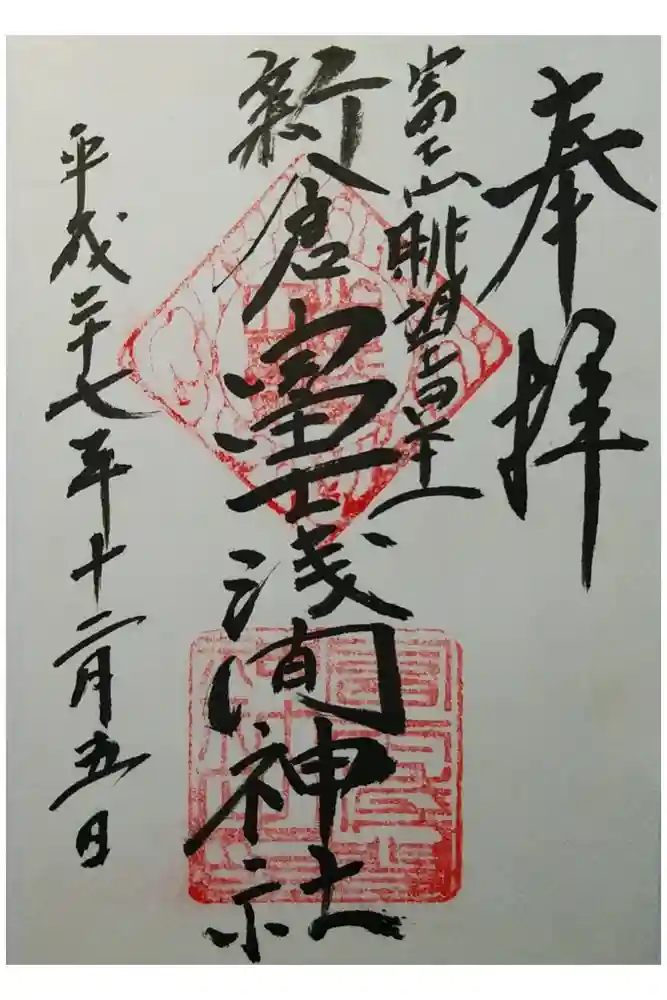 奉拝
富士山眺望日本一
新倉富士浅间神社
平成二十七年十二月五日